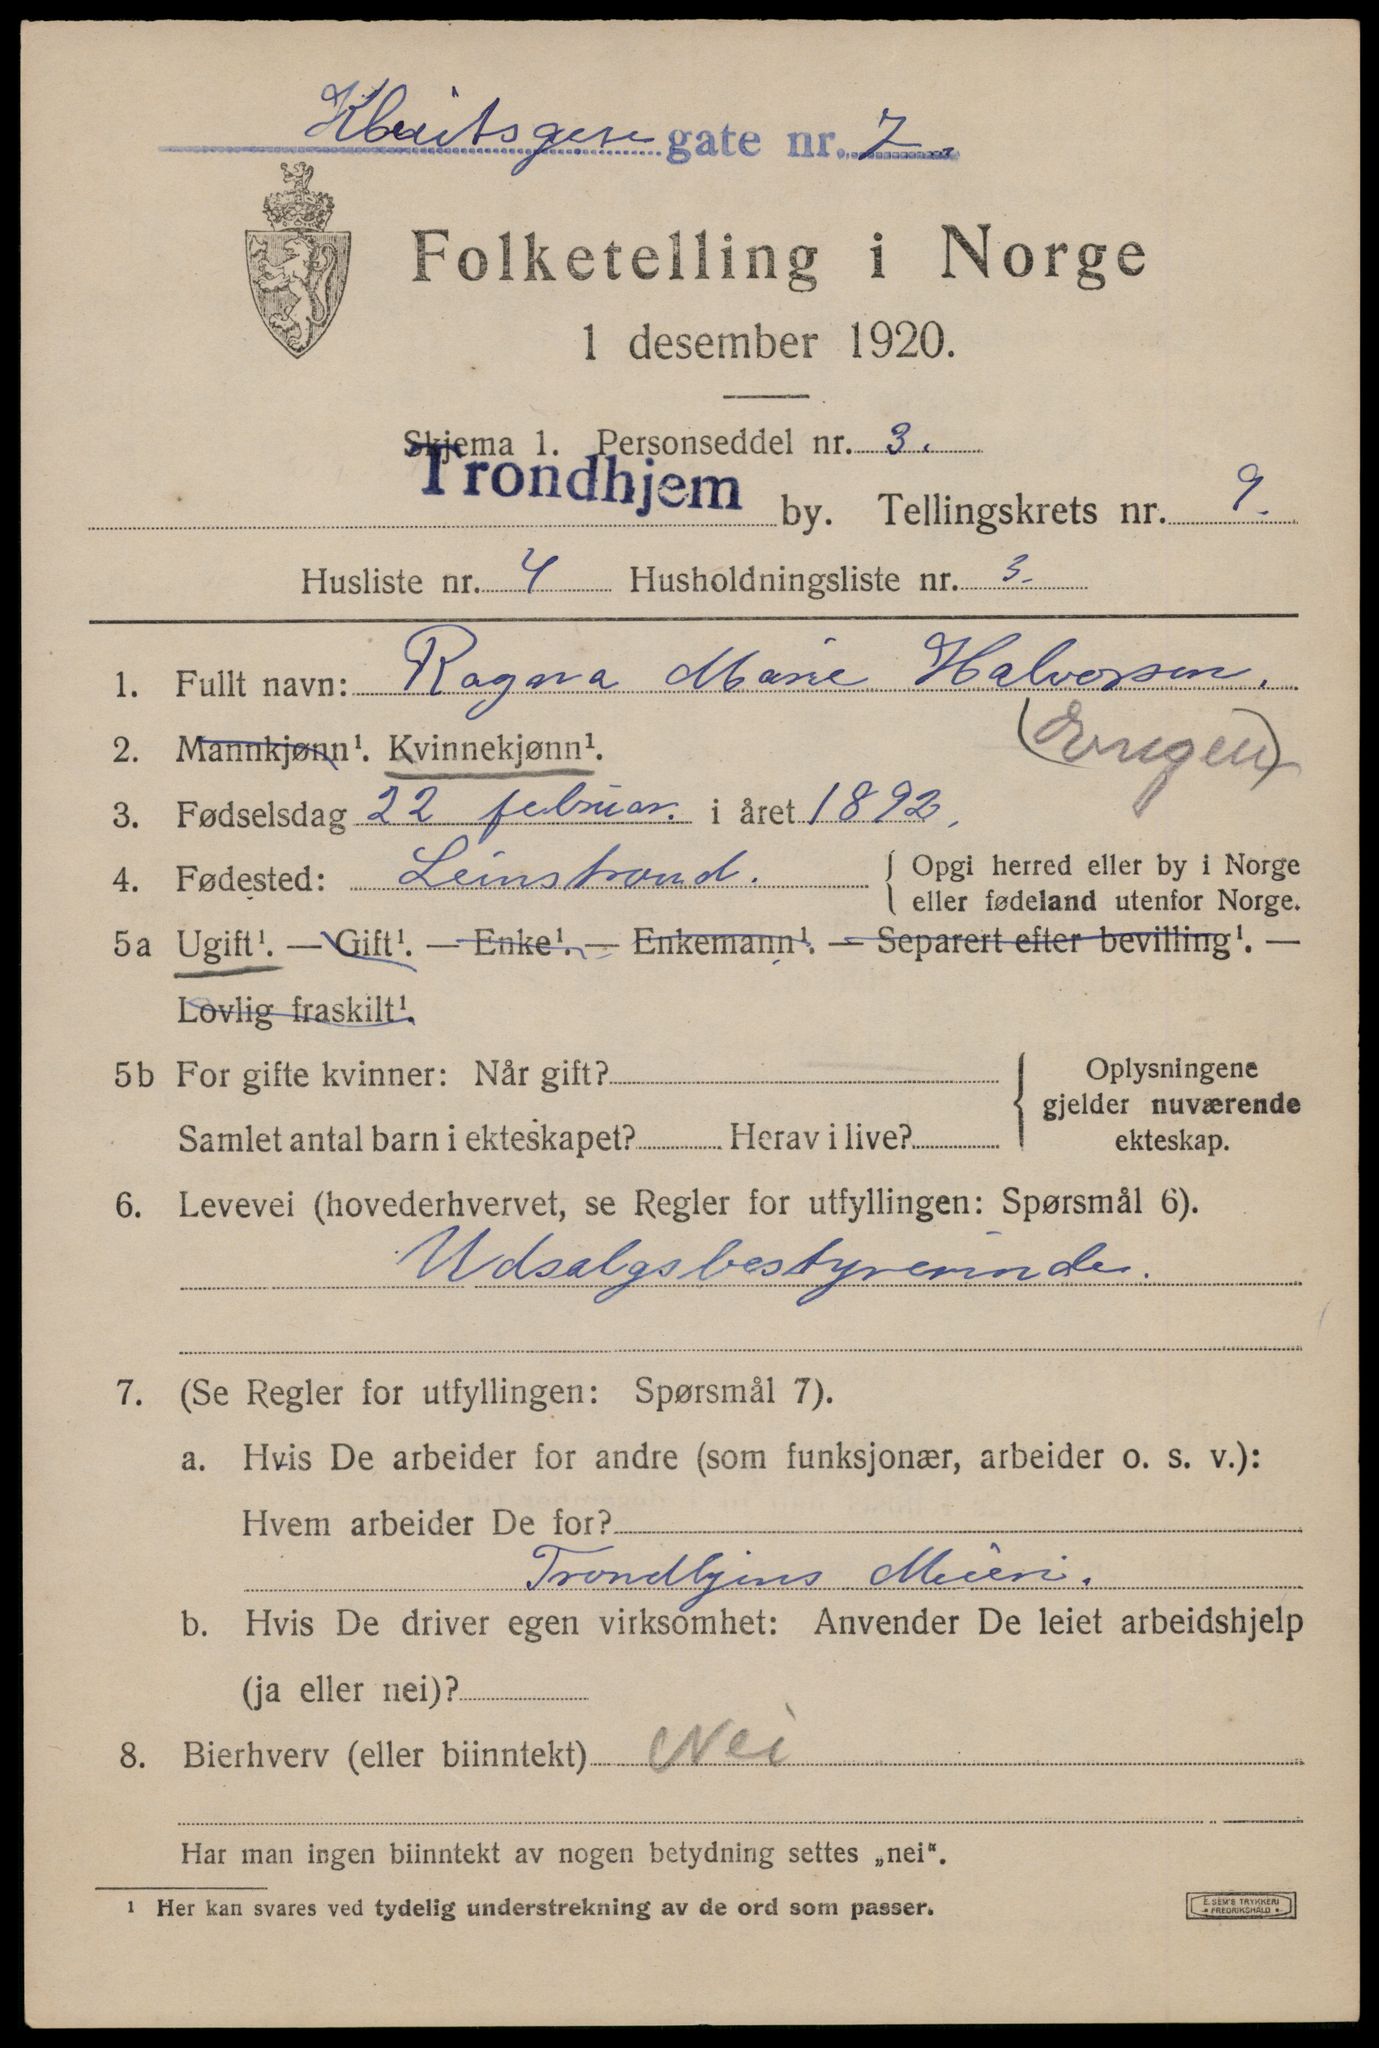 gate nr. 7
Folketelling i Norge
1 desember 1920.
Skjema 1. Personseddel nr. 3.
Trondhjem by. Tellingskrets nr. 9.
Husliste nr. 4 Husholdningsliste nr. 3.
1. Fullt navn: Ragna Marie Halvorsen.
(Engen)
2. Mannkjønn¹. Kvinnekjønn¹.
3. Fødselsdag 22 februar. i året 1892.
4. Fødested: Leinstrand. { Opgi herred eller by i Norge
eller fødeland utenfor Norge.
5a Ugift¹. — Gift¹. — Enke¹. — Enkemann¹. — Separert efter bevilling¹. —
Lovlig fraskilt¹.
5b For gifte kvinner: Når gift?
Samlet antal barn i ekteskapet? Herav i live?
Oplysningene
gjelder nuværende
ekteskap.
6. Levevei (hovederhvervet, se Regler for utfyllingen: Spørsmål 6).
Udsalgsbestyrerinde.
7. (Se Regler for utfyllingen: Spørsmål 7).
a. Hvis De arbeider for andre (som funksjonær, arbeider o. s. v.):
Hvem arbeider De for?
Trondhjems Meieri.
b. Hvis De driver egen virksomhet: Anvender De leiet arbeidshjelp
(ja eller nei)?
8. Bierhverv (eller biinntekt) Nei
Har man ingen biinntekt av nogen betydning settes „nei“.
¹ Her kan svares ved tydelig understrekning av de ord som passer.
E. SEM'S TRYKKERI
FREDRIKSHALD